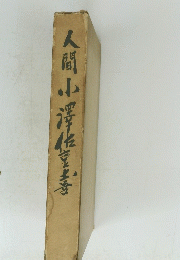 人間小澤佐重喜